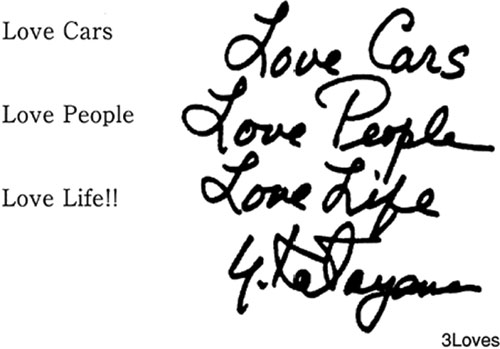 Love Cars
Love Cars
Love People
Love People
Love Life!!
Love Life
Y. Katayama
3Loves